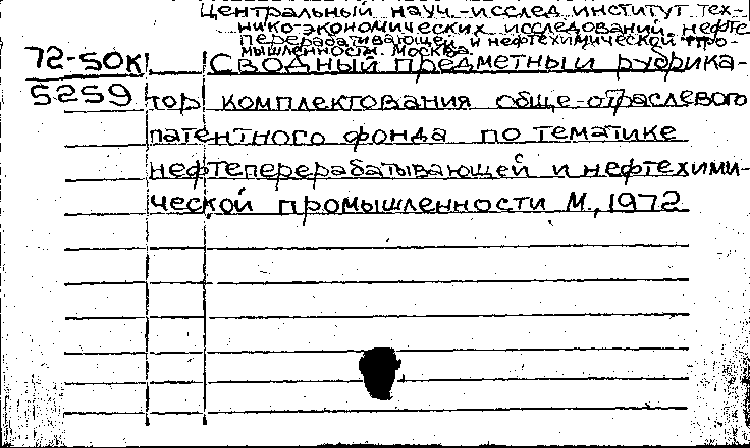 Центральный науч.-исслед. институт тех-
нико-экономических исследований нефте
перерабатывающей и нефтехимической про-
мышленности. Москва
72-50К
5259
Сводный предметный рубрика-
тор комплектования обще-отраслевого
патентного фонда по тематике
нефтеперерабатывающей и нефтехими-
ческой промышленности М., 1972